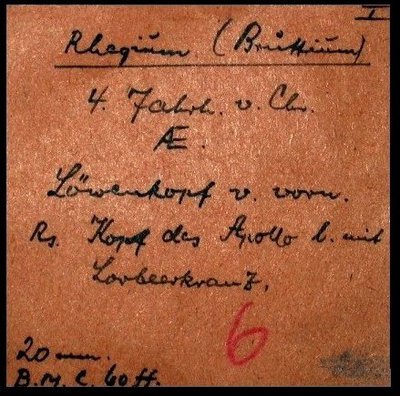 I
Rhegium (Bruttium)
4. Jahrh. v. Chr.
Æ.
Löwenkopf v. vorn.
Rs. Kopf des Apollo l. mit
Lorbeerkranz.
6
20 mm.
B.M.C. 60 ff.